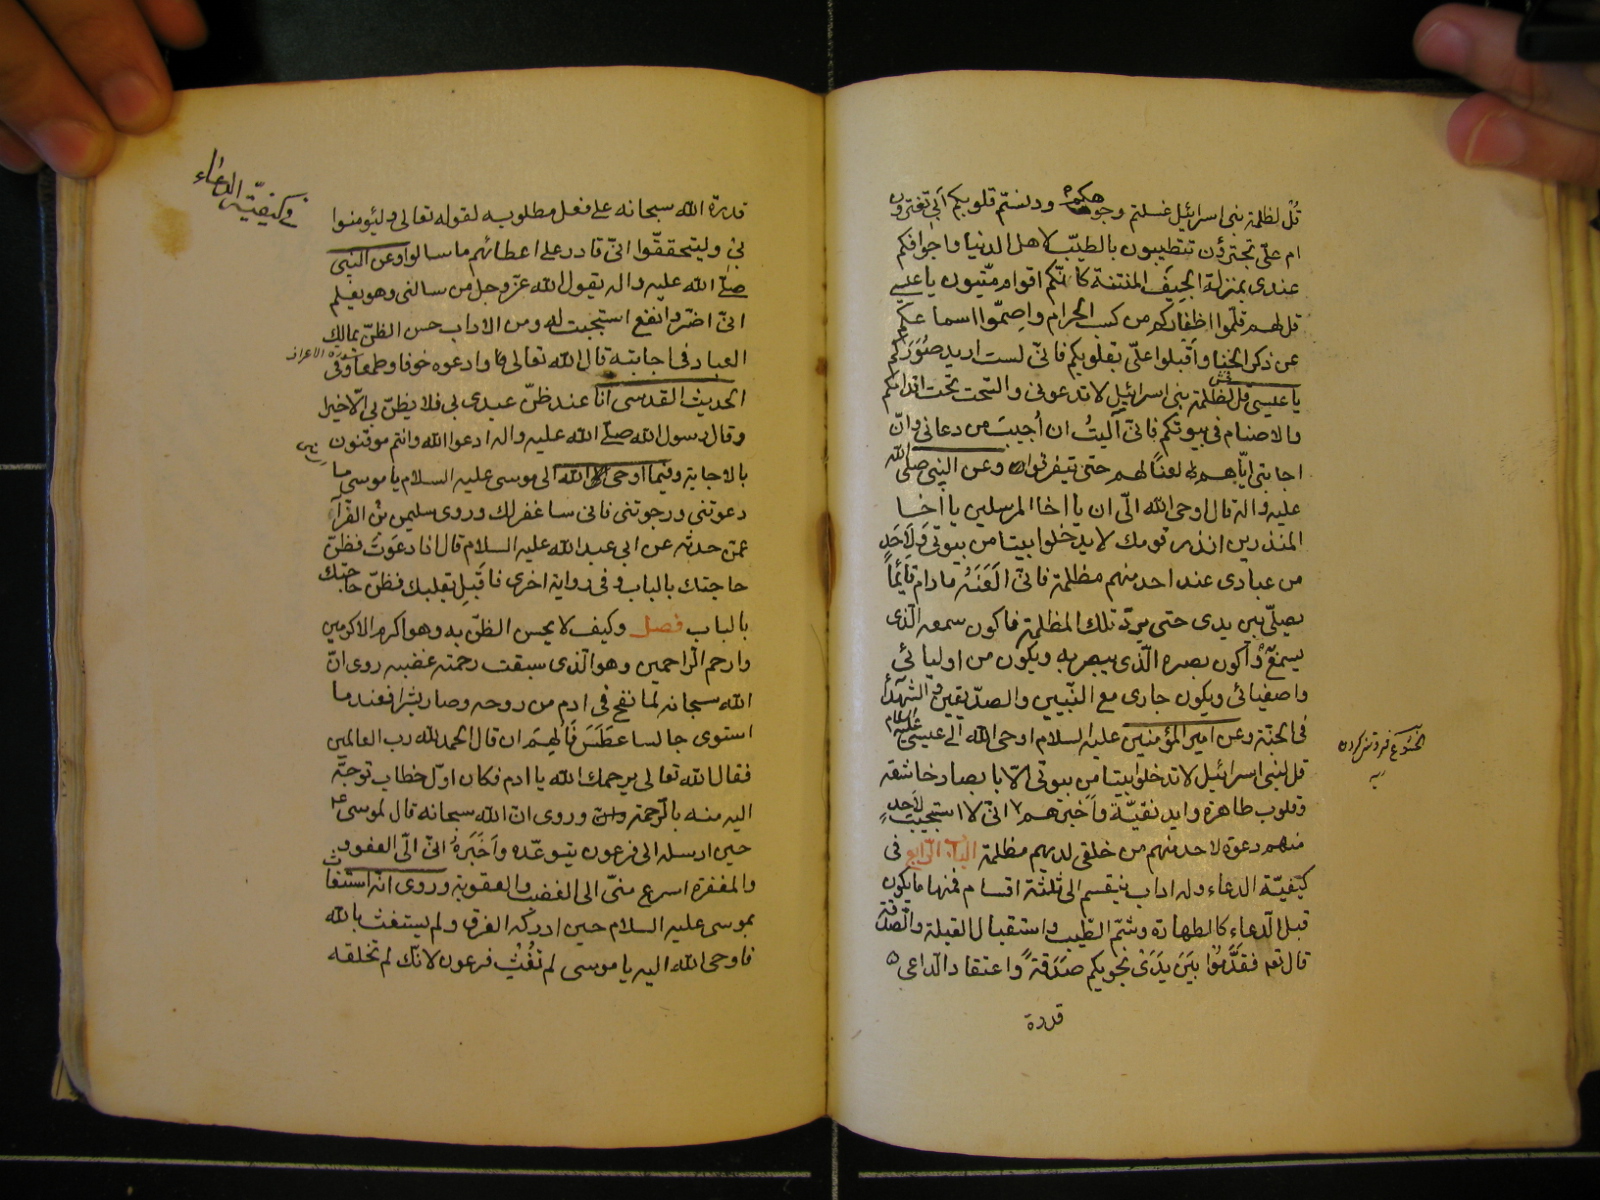 قل لظلمة بنى اسرائيل غسلتم وجوهكم ودنستم قلوبكم أبى تغترون
ام علىّ تجترؤن تتطيبون بالطيب لاهل الدنيا واجوافكم
عندى بمنزلة الجيف المنتنة كانكم اقوام ميّتيون يا عيسى
قل لهم قلّموا اظفاركم من كسب الحرام واصمّوا اسماعكم
عن ذكر الخنا واقبلوا علىّ بقلوبكم فانّى لست اريد صوركم
فحش
يا عيسى قل لظلمة بنى اسرائيل لا تدعونى والسّحت تحت اقدامكم
والاصنام فى بيوتكم فانّى آليتُ ان اُجيبَ من دعانى وانّ
اجابتى ايّاهم لعنًا لهم حتى يتفرقوا وعن النبى صلى الله
عليه واله قال اوحى الله الىّ ان يا اخا المرسلين يا اخا
المنذرين انذر قومك لا يدخلوا بيتا من بيوتى ولاحد
من عبادى عند احد منهم مظلمة فانّى العنه ما دام قائماً
يصلّى بين يدى حتى يردّ تلك المظلمة فاكون سمعه الّذى
يسمع به واكون بصره الّذى يبصر به ويكون من اوليائى
واصفيائى ويكون جارى مع النّبيين والصدّيقين والشهدآء
فى الجنّة وعن امير المؤمنين عليه السلام اوحى الله الى عيسى عليه السلام
قل لبنى اسرائيل لا تدخلوا بيتا من بيوتى الّا بابصار خاشعة
وقلوب طاهرة وايد نقيّة واخبرهم انّى لا استجيب لاحدٍ
منهم دعوة لاحد منهم من خلقى لديهم مظلمة الباب الرّابع فى
كيفيّة الدعاء وله اداب ينقسم الى ثلثة اقسام فمنها ما يكون
قبل الدّعاء كالطهارة وشمّ الطّيب واستقبال القبلة والصّدقة
قال تعه فقدّموا بين يدى نجويكم صدقةً واعتقاد الداعى
قدرة
فى كيفيّة الدعاء
قدرة الله سبحانه على فعل مطلوبه لقوله تعالى وليؤمنوا
بى وليتحققّوا انّى قادر على اعطائهم ما سالوا وعن النبى
صلّى الله عليه واله يقول الله عزّ وجل من سالنى وهو يعلم
انّى اضرّ وانفع استجبت له ومن الاداب حسن الظنّ بمالك
العباد فى اجابته قال الله تعالى وادعوه خوفا وطمعا وفى
سورة الاعراف
الحديث القدسى انا عند ظنّ عبدى بى فلا يظنّ بى الّا خيرا
وقال رسول الله صلّى الله عليه واله ادعوا الله وانتم موقنون
بالاجابة وفيما اوحى الله الى موسى عليه السلام يا موسى ما
دعوتنى ورجوتنى فانى ساغفر لك وروى سليمن بن الفرآ
عمّن حدثه عن ابى عبد الله عليه السلام قال اذا دعوت فظنّ
حاجتك بالباب وفى رواية اخرى فاقبل بقلبك فظنّ حاجتك
بالباب فصل وكيف لا يحسن الظنّ به وهو اكرم الاكرمين
وارحم الراحمين وهو الّذى سبقت رحمته غضبه روى انّ
الله سبحانه لما نفخ فى ادم من روحه وصار بشرا فعند ما
استوى جالسا عطس فالهم ان قال الحمد لله رب العالمين
فقال الله تعالى يرحمك الله يا ادم فكان اوّل خطاب توجّه
اليه منه بالرّحمة وروى انّ الله سبحانه قال لموسى ع
حين ارسله الى فرعون يتوعّده واخبره انّى الى العفو
والمغفرة اسرع منّى الى الغضب والعقوبة وروى انّه استغاث
بموسى عليه السلام حين ادركه الغرق ولم يستغث بالله
فاوحى الله اليه يا موسى لم تغث فرعون لانّك لم تخلقه